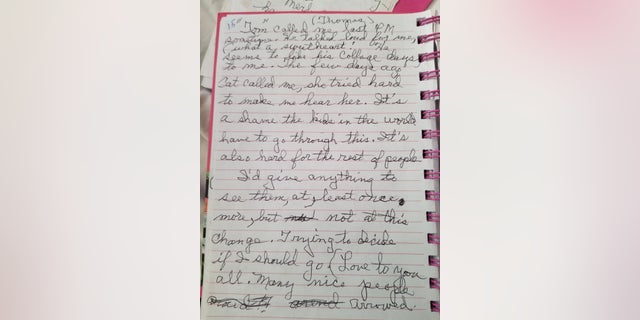 Merl
15" " (Thomas)
Tom called me last P.M
sometime. He talked loud for me,
(what a sweetheart! He
seems to like his Collage days
to me. The few days ago
Pat called me, she tried hard
to make me hear her. It's
a shame the kids in the world
have to go through this. It's
also hard for the rest of people
I'd give anything to
see them, at least once
more, but not at this
change. Trying to decide
if I should go (Love to you
all. Many nice people
arowed.